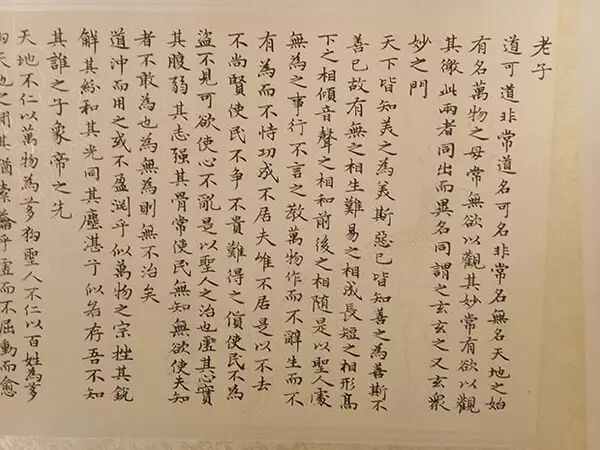 老子
道可道非常道名可名非常名無名天地之始
有名萬物之母常無欲以觀其妙常有欲以觀
其徼此兩者同出而異名同謂之玄玄之又玄衆
妙之門
天下皆知美之為美斯惡已皆知善之為善斯不
善已故有無之相生難易之相成長短之相形高
下之相傾音聲之相和前後之相隨是以聖人處
無為之事行不言之教萬物作而不辭生而不
有為而不恃功成不居夫唯不居是以不去
不尚賢使民不爭不貴難得之貨使民不為
盜不見可欲使心不亂是以聖人之治也虛其心實
其腹弱其志强其骨常使民無知無欲使夫知
者不敢為也為無為則無不治矣
道沖而用之或不盈淵乎似萬物之宗挫其銳
解其紛和其光同其塵湛兮似若存吾不知
其誰之子象帝之先
天地不仁以萬物為芻狗聖人不仁以百姓為芻
狗天地之間其猶橐籥乎虛而不屈動而愈